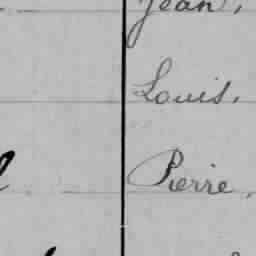 Jean,
Louis,
Pierre,